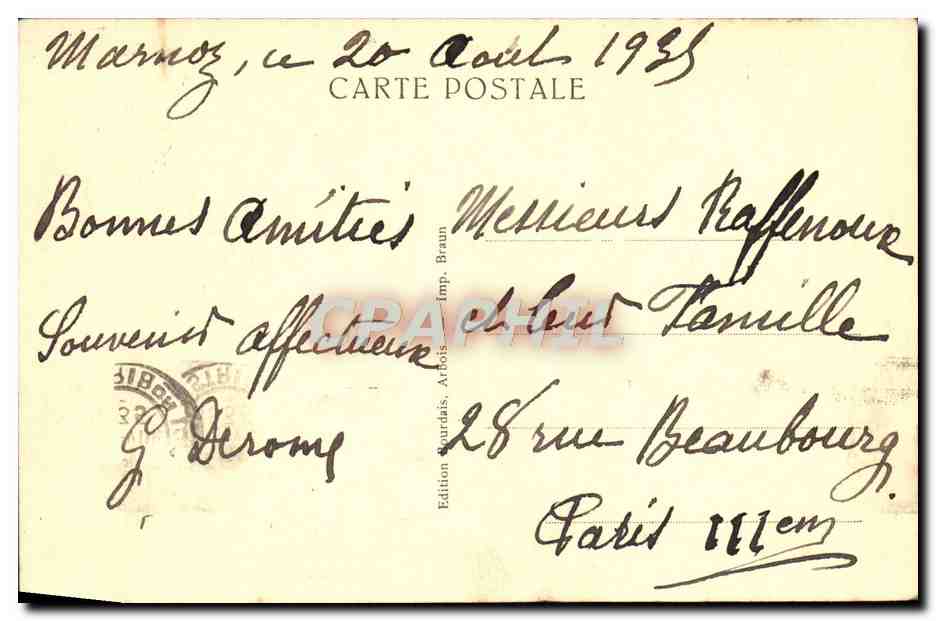 Marnoz, le 20 Août 1935
CARTE POSTALE
Bonnes Amitiés
Souvenir affectueux
G Derome
Edition Bourdais, Arbois Imp. Braun
CPAPHIL
Messieurs Raffenoux
et leur Famille
28 rue Beaubourg
Paris IIIem